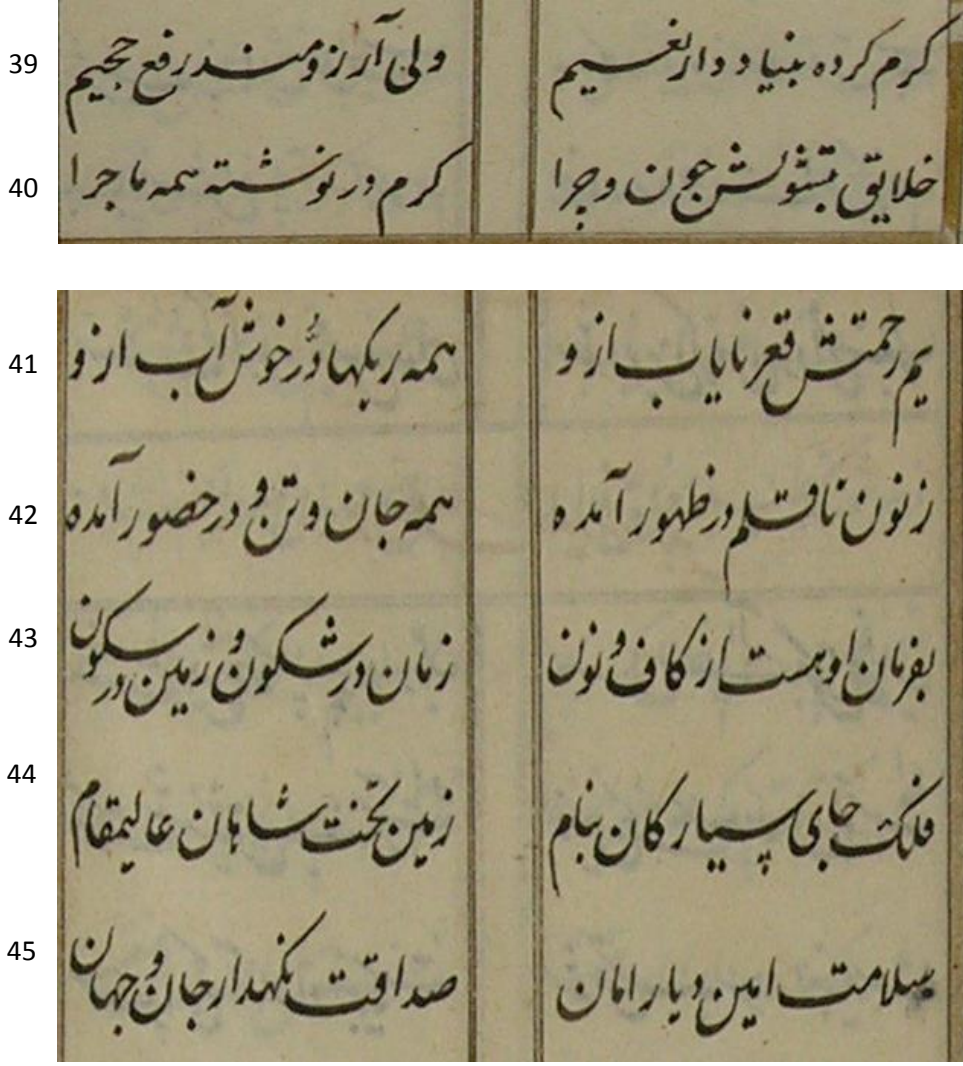 39 کرم کرده بنیاد دار نعیم ولی آرزومند رفع جحیم
40 خلایق بتشویش جون و چرا کرم در نوشته همه ماجرا
41 یم رحمتش قعر نایاب ازو همه ریکها دُر خوش آب ازو
42 ز نون تا قلم در ظهور آمده همه جان و تن و در حضور آمده
43 بفرمان او هست از کاف و نون زمان در شکون و زمین در سکون
44 فلک جای سیارکان بنام زمین تخت شاهان عالیمقام
45 سلامت امین دیار امان صداقت نکهدار جان و جهان